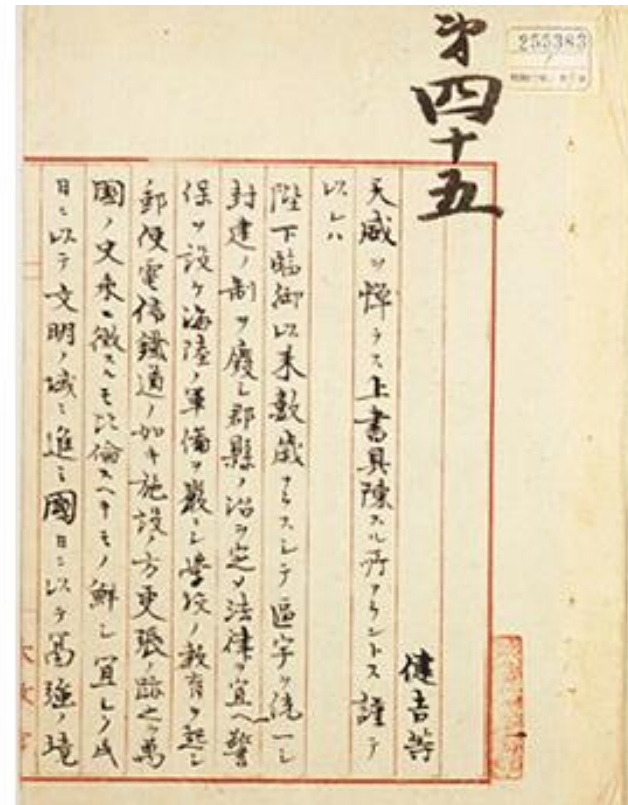 第四十五
255383
健吉等
天威ヲ憚ラス上書具陳スル所アラントス謹テ
以レハ
陛下臨御以来数歳ナラスシテ區宇ヲ統一シ
封建ノ制ヲ廢シ郡縣ノ治ヲ定メ法律ヲ宣ヘ警
保ヲ設ケ海陸ノ軍備ヲ嚴ニシ學校ノ教育ヲ起シ
郵便電信鐵道ノ如キ施設ノ方更張ノ跡之ヲ萬
國ノ史乘ニ徴スルモ比倫スヘキモノ鮮シ宜シク民
日ニ以テ文明ノ域ニ進ミ國日ニ以テ富強ノ境